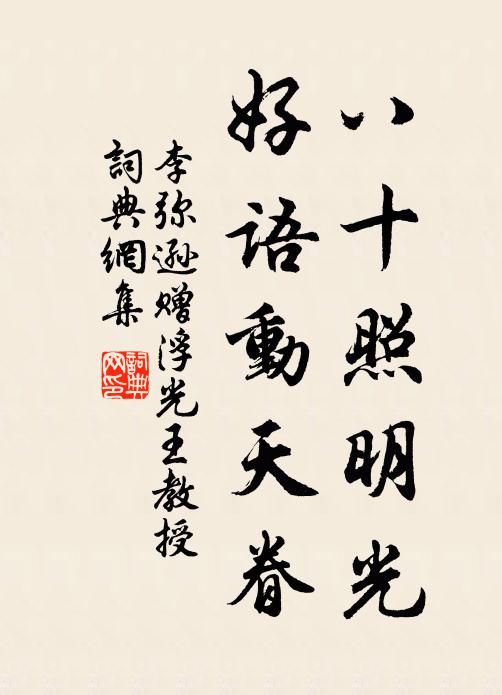 八十照明光
好語動天眷
李弥遜赠浮光王教授
詞典網集
詞典網印